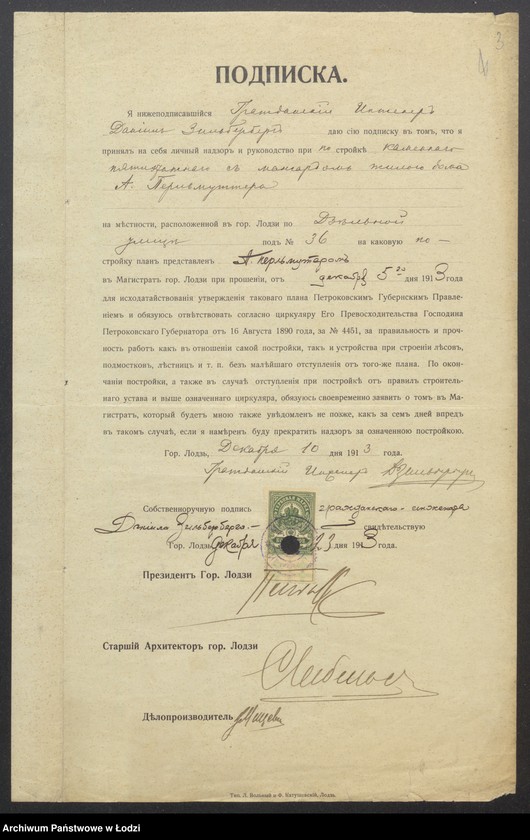 3
ПОДПИСКА.
Я нижеподписавшійся Гражданскій Инженеръ
Даніилъ Зильбербергъ даю сію подписку въ томъ, что я
принялъ на себя личный надзоръ и руководство при по стройкѣ каменнаго
пятиэтажнаго съ мансардомъ жилого дома
А. Перльмуттера
на мѣстности, расположенной въ гор. Лодзи по Дѣльной
улицѣ подъ № 36 на каковую по-
стройку планъ представленъ А. Перльмутеромъ
въ Магистратъ гор. Лодзи при прошеніи, отъ декабря 5го дня 1913 года
для исходатайствованія утвержденія таковаго плана Петроковскимъ Губернскимъ Правле-
ніемъ и обязуюсь отвѣтствовать согласно циркуляру Его Превосходительства Господина
Петроковскаго Губернатора отъ 16 Августа 1890 года, за № 4451, за правильность и проч-
ность работъ какъ въ отношеніи самой постройки, такъ и устройства при строеніи лѣсовъ,
подмостковъ, лѣстницъ и т. п. безъ малѣйшаго отступленія отъ того-же плана. По окон-
чаніи постройки, а также въ случаѣ отступленія при постройкѣ отъ правилъ строитель-
наго устава и выше означеннаго циркуляра, обязуюсь своевременно заявить о томъ въ Ма-
гистратъ, который будетъ мною также увѣдомленъ не позже, какъ за семь дней впредъ
въ такомъ случаѣ, если я намѣренъ буду прекратить надзоръ за означенною постройкою.
Гор. Лодзь, Декабря 10 дня 1913 года.
Гражданскій Инженеръ ДЗильбербергъ
Собственноручную подпись гражданскаго-инженера
Даніила Зильберберга.- свидѣтельствую
Гор. Лодзь, декабря 23 дня 1913 года.
Президентъ Гор. Лодзи
Старшій Архитекторъ гор. Лодзи
Дѣлопроизводитель
Тип. Л. Вольный и Ф. Катушевскій, Лодзь.
Archiwum Państwowe w Łodzi